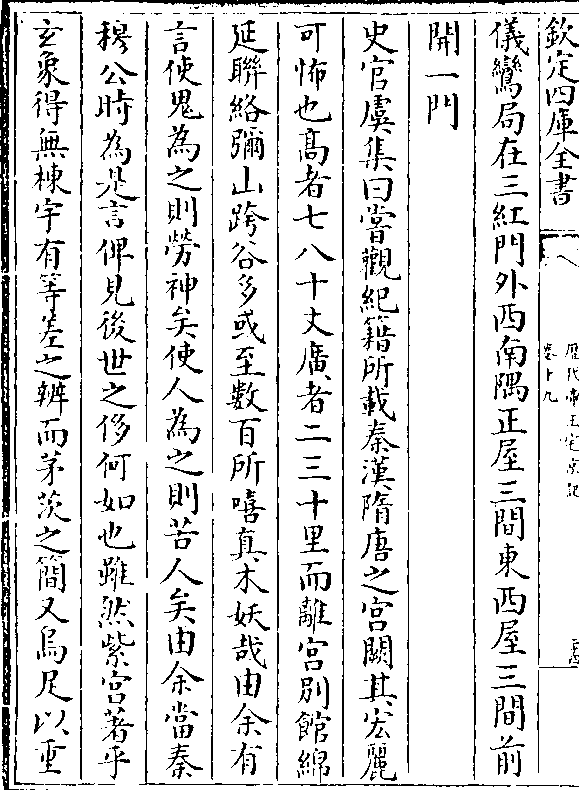 欽定四庫全書
歷代帝王宅京記
卷十九
儀鸞局在三紅門外西南隅正屋三間東西屋三間前
開一門
史官虞集曰嘗觀紀籍所載秦漢隋唐之宮闕其宏麗
可怖也髙者七八十丈廣者二三十里而離宮別館綿
延聯絡彌山跨谷多或至數百所嘻真木妖哉由余有
言使鬼為之則勞神矣使人為之則苦人矣由余當秦
穆公時為是言俾見後世之侈何如也雖然紫宮著乎
玄象得無棟宇有等差之辨而茅茨之簡又烏足以重